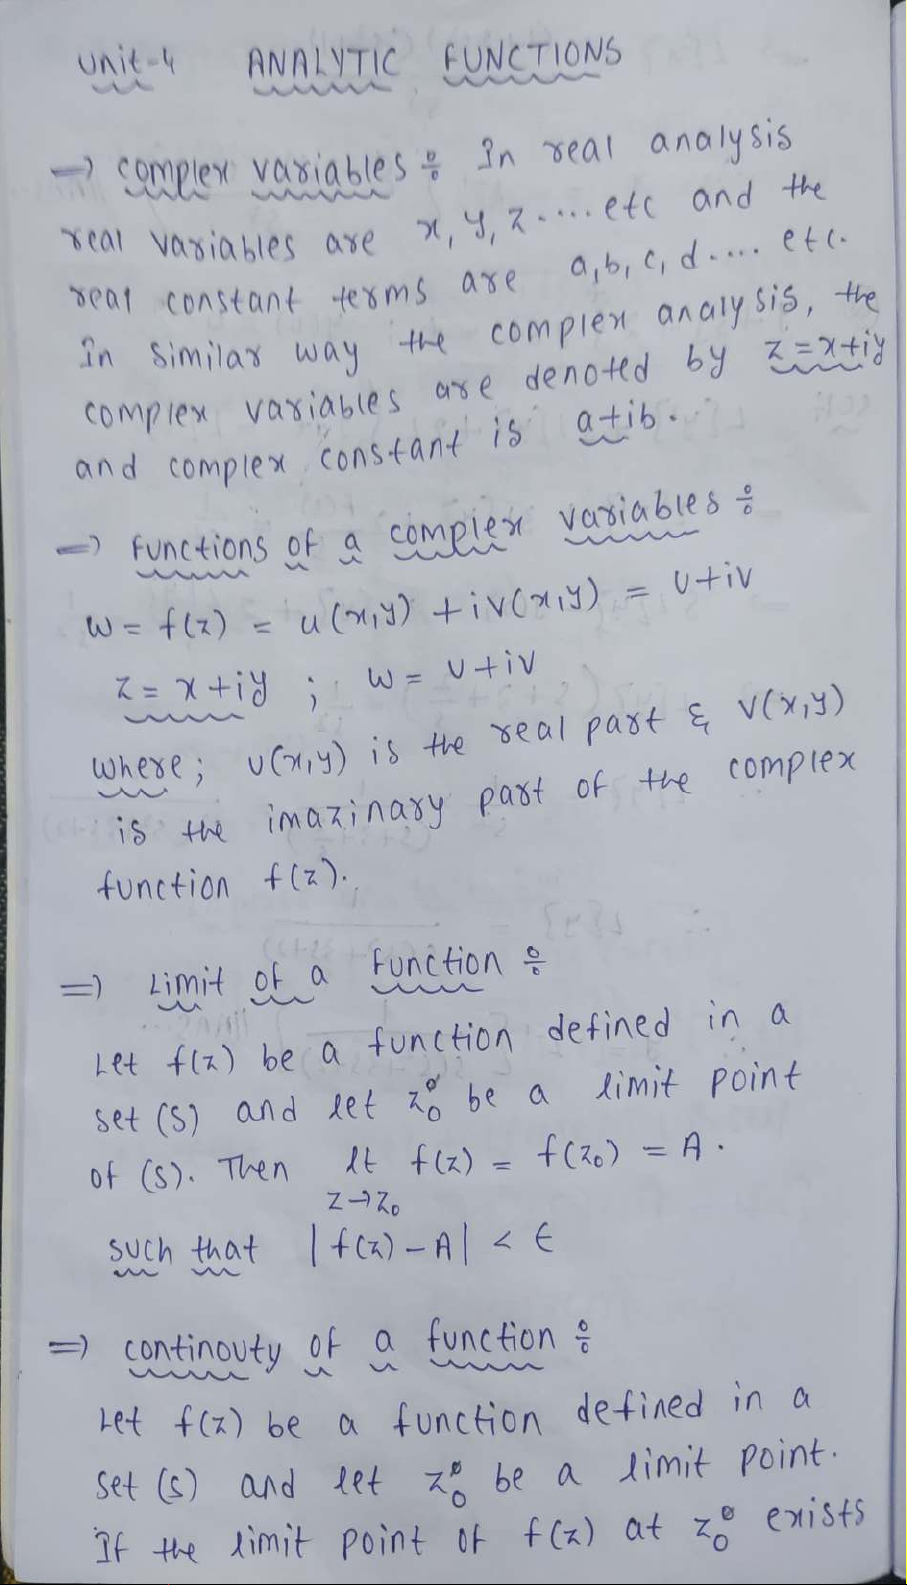 Unit-4 ANALYTIC FUNCTIONS
→ complex variables : In real analysis
real variables are x, y, z.... etc and the
real constant terms are a, b, c, d.... etc.
In similar way the complex analysis, the
complex variables are denoted by z=x+iy
and complex constant is a+ib.
⇒ Functions of a complex variables :
w = f(z) = u(x,y) + iv(x,y) = u+iv
z = x+iy ; w = u+iv
where; u(x,y) is the real part & v(x,y)
is the imazinary part of the complex
function f(z).
⇒ Limit of a function :
Let f(z) be a function defined in a
set (S) and let z₀ be a limit point
of (S). Then lt f(z) = f(z₀) = A.
z→z₀
such that |f(z)-A| < ε
⇒ continouty of a function :
Let f(z) be a function defined in a
set (S) and let z₀ be a limit point.
If the limit point of f(z) at z₀ exists